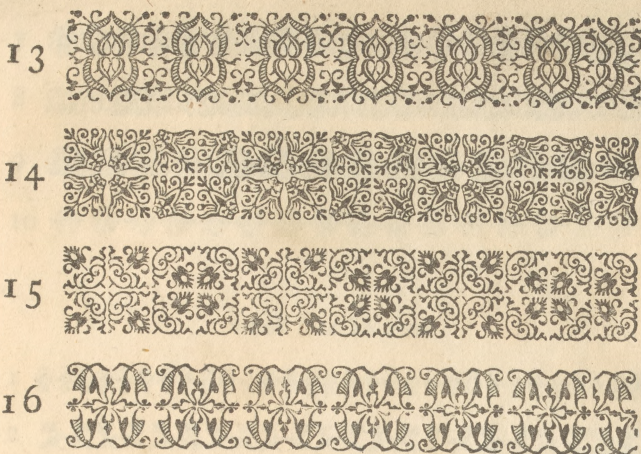 13
14
15
16